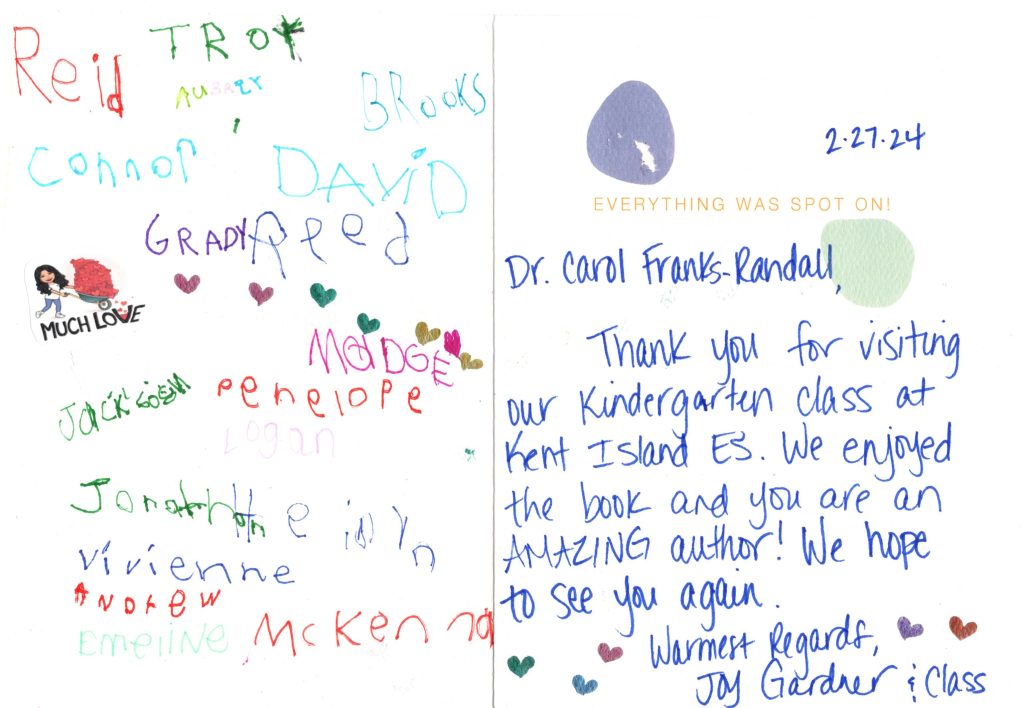 Reid
TROY
AUBREY
BROOKS
Connor
DAVID
GRADY
Reed
MUCH LOVE
MADGE
JACKSON
penelope
Logan
Jonathon
vivienne
ANDREW
EMELINE
McKenna
2.27.24
EVERYTHING WAS SPOT ON!
Dr. Carol Franks-Randall,
Thank you for visiting
our Kindergarten class at
Kent Island ES. We enjoyed
the book and you are an
AMAZING author! We hope
to see you again.
Warmest Regards,
Joy Gardner & Class